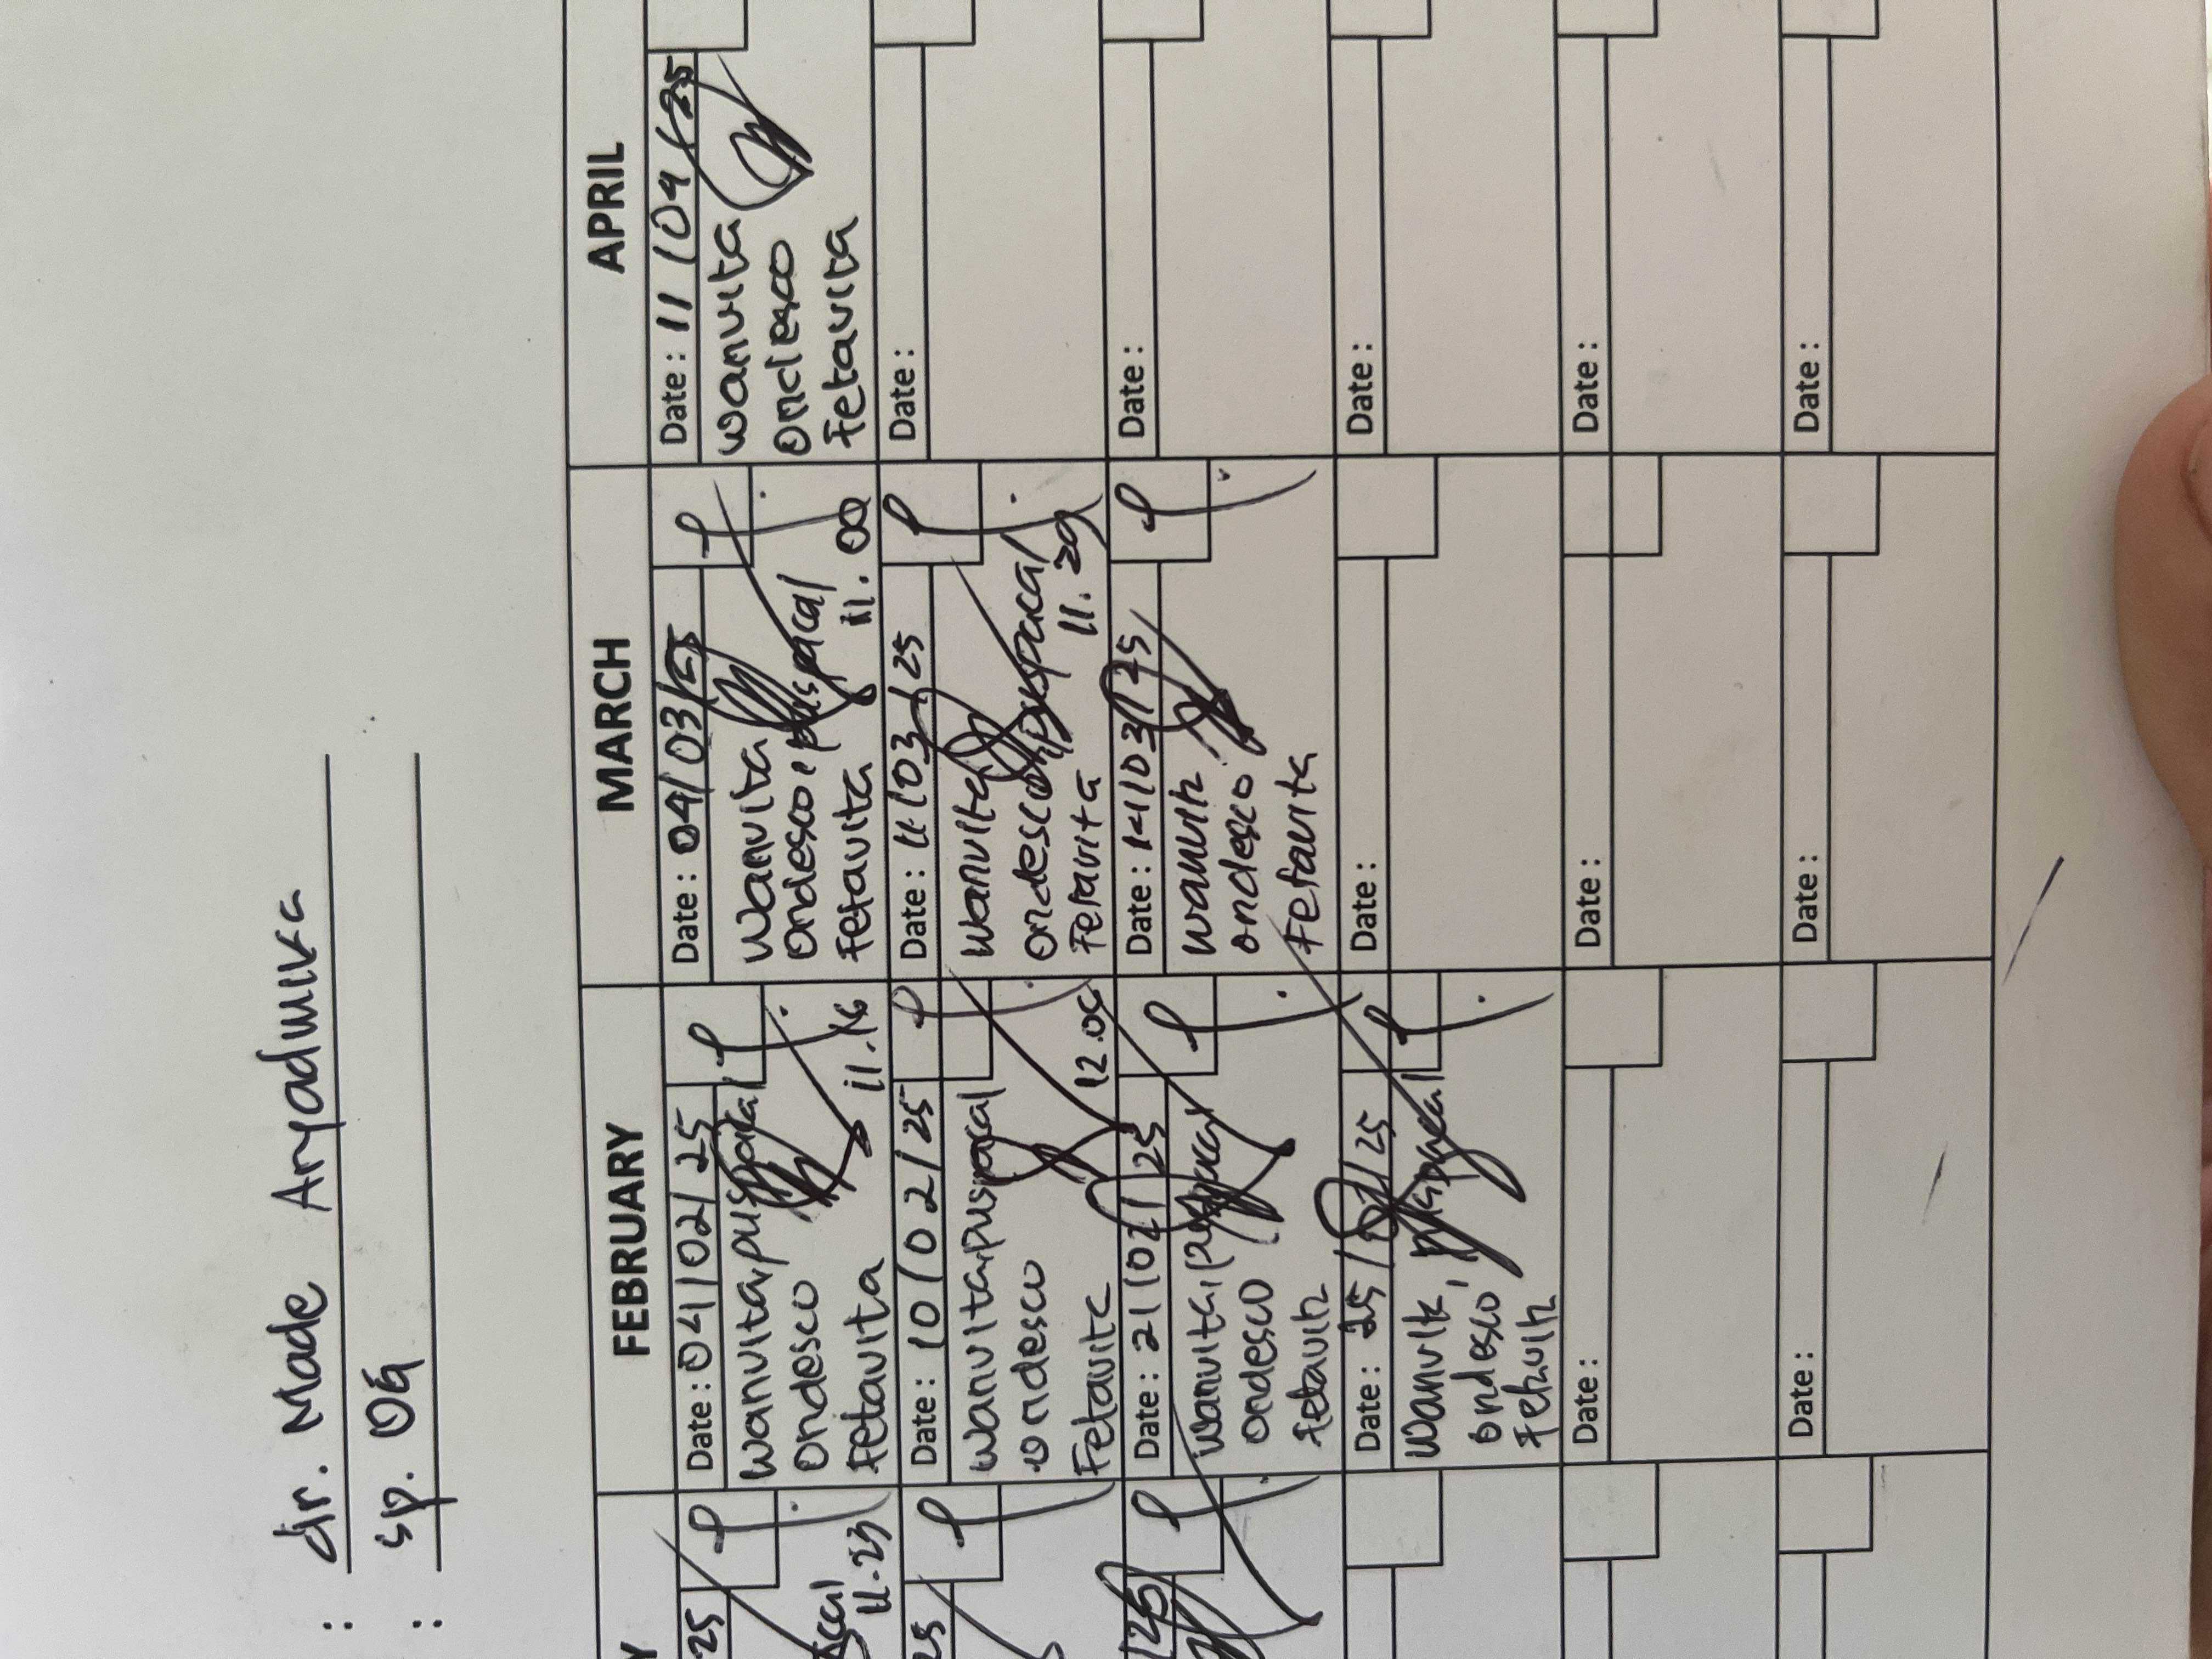 : dr. Made Aryadwika
: Sp. OG
FEBRUARY
MARCH
APRIL
25
Date : 04/02/25
Date : 04/03/25
Date : 11/04/25
wanvita, puspacal
wanvita
wanvita
ondesco
ondesco, puspacal
ondesco
11.23
fetavita 11.16
fetavita 11.00
Fetavita
25
Date : 10/02/25
Date : 11/03/25
Date :
wanvita, puspacal
wanvita
ondesco
ondesco, puspacal
Fetavita
Fetavita 11.29
25
Date : 21/02/25
Date : 14/03/25
Date :
wanvita,
ondesco
ondesco
Fetavita
Date : 25/02/25
Date :
Date :
ondesco
Date :
Date :
Date :
Date :
Date :
Date :